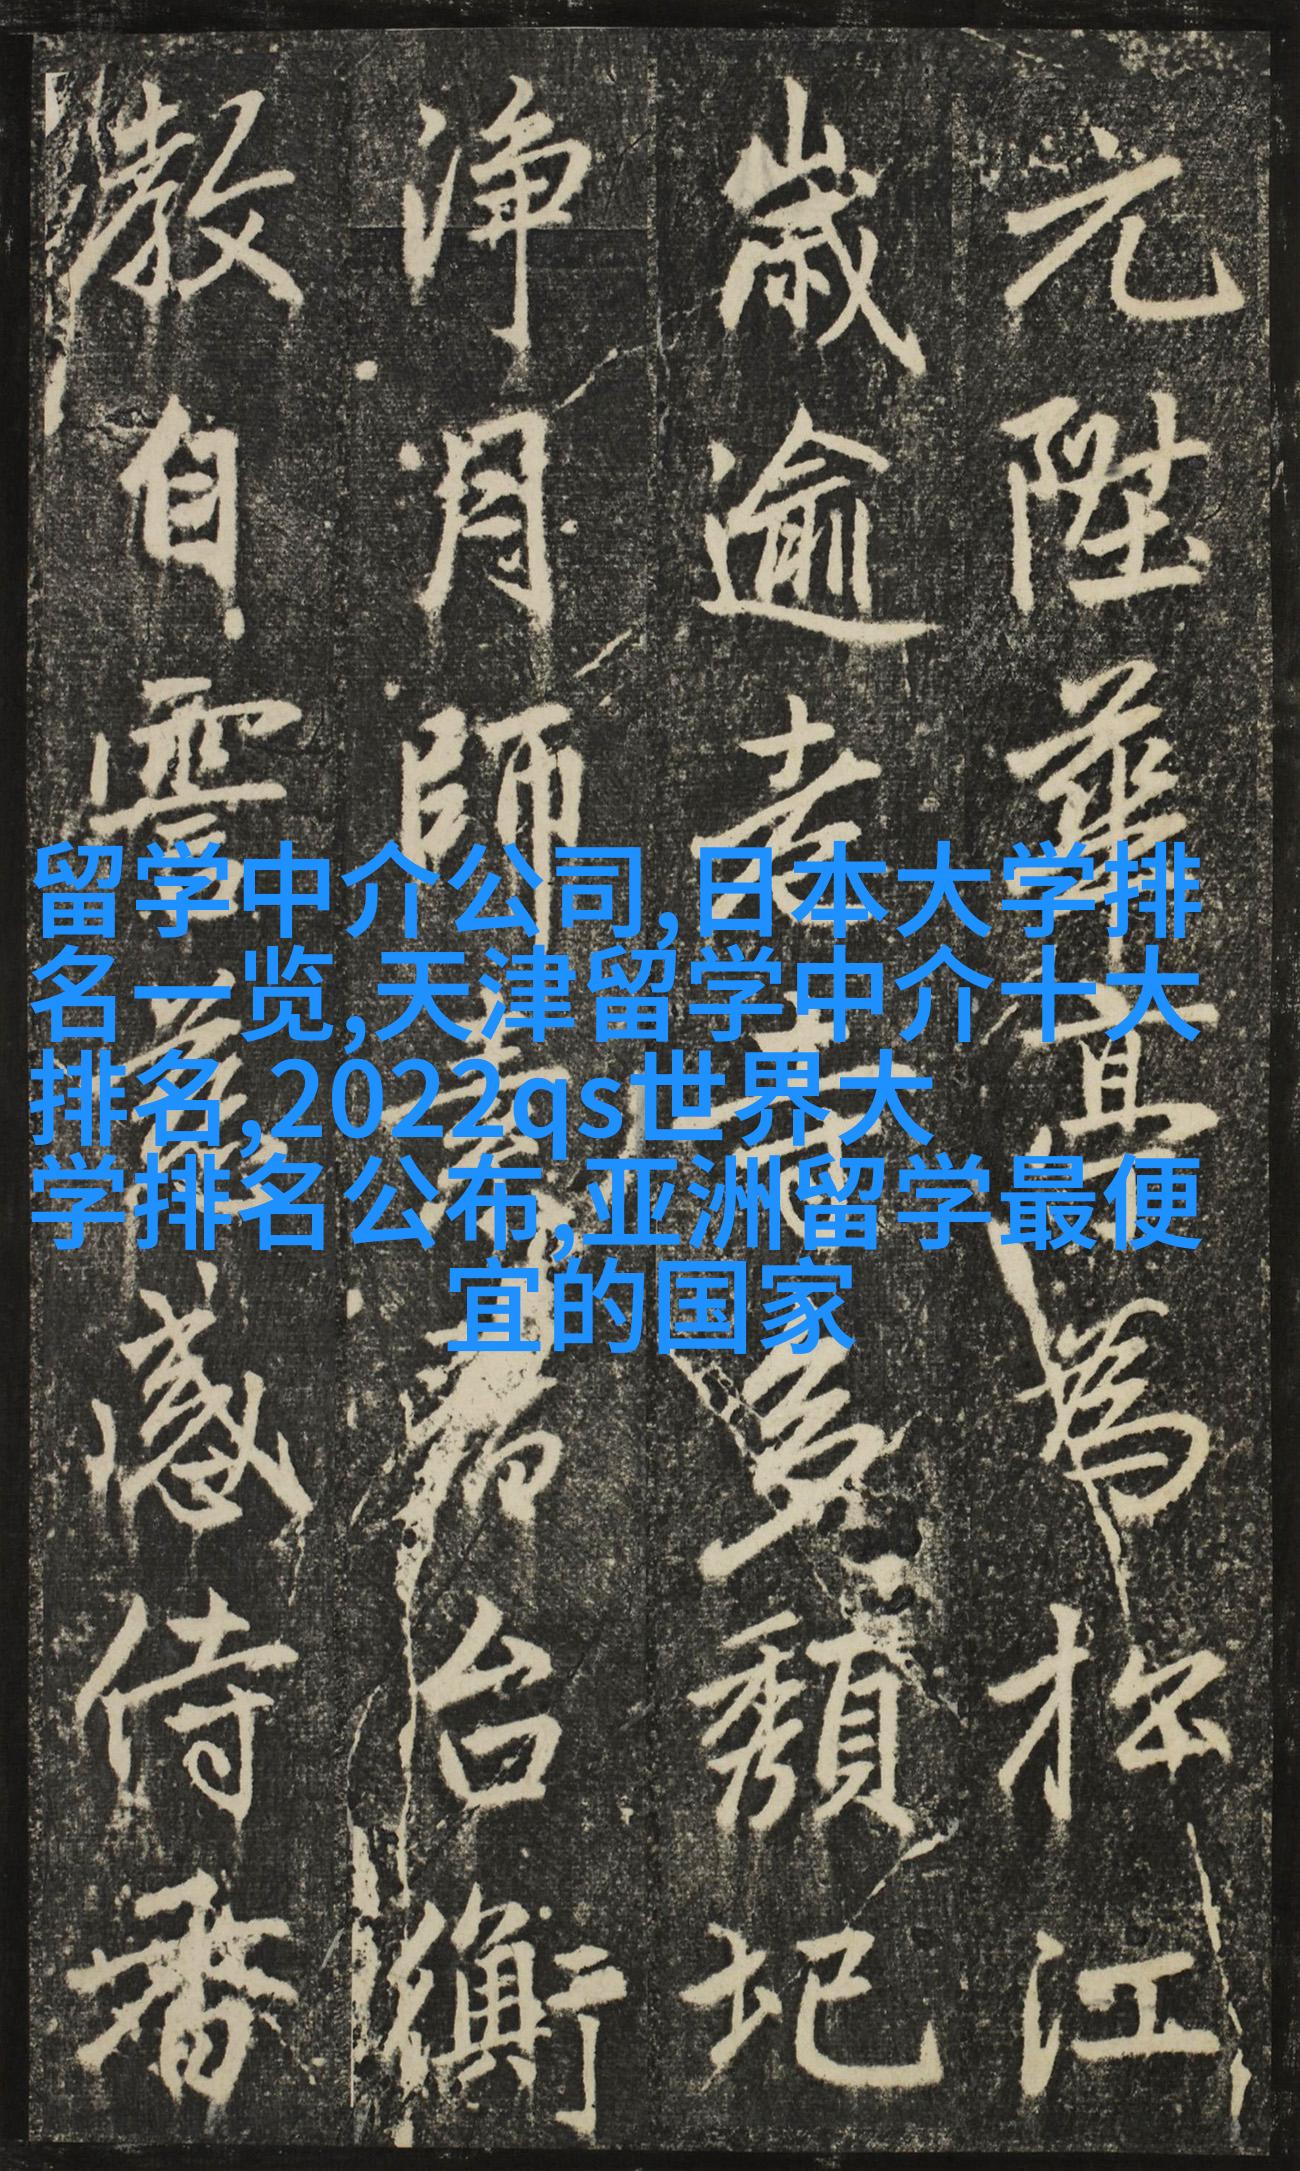 元陞華宜為扵江
歲逾老多頹圮
淨月師台衡
教自雲感侍香
留学中介公司,日本大学排
名一览,天津留学中介十大
排名,2022qs世界大
学排名公布,亚洲留学最便
宜的国家